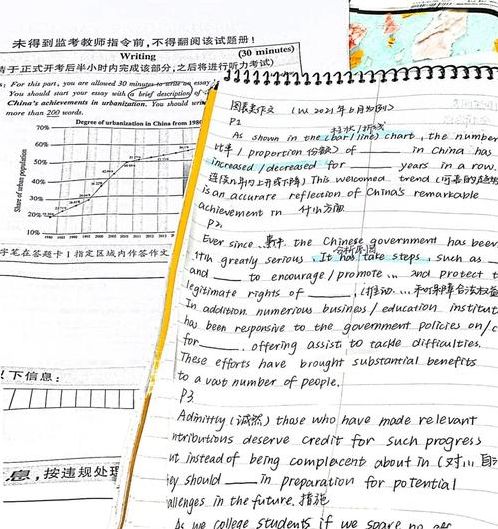 未得到监考教师指令前,不得翻阅该试题册!
Writing
(30 minutes)
请于正式开考后半小时内完成该部分,之后将进行听力考试)
For this part, you are allowed 30 minutes to write an essay
You should start your essay with a brief description of
China's achievements in urbanization. You should write
more than 200 words.
Degree of urbanization in China from 198
Share of urban population
70%
60%
50%
40%
30%
20%
10%
字笔在答题卡1指定区域内作答作文
以下信息:
息,按违规处理
图表类作文 (以2021年6月为例)
P1
柱状/折线
As shown in the (bar/line) chart, the number
比率 / proportion 份额) of ____ in China has
increased / decreased for ____ years in a row.
This welcomed trend
is an accurate reflection of China's remarkable
achievement in 什么方面
P2
Ever since 事件 the Chinese government has been
greatly serious. It has take steps, such as
and ____ to encourage / promote ... and protect t
legitimate rights of ____,
In addition numerous business / education institut
has been responsive to the government policies on/c
for ____, offering assist to tackle difficulties.
These efforts have brought substantial benefits
to a vast number of people.
P3
Admittly (诚然) those who have made relevant
ntributions deserve credit for such progress
ut instead of being complacent about in (对...
ey should ____ in preparation for potential
allenges in the future. 措施
As we college students if we spare no